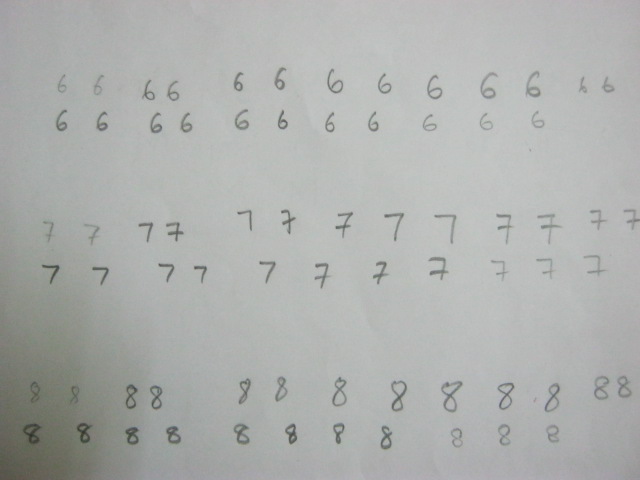 6 6 6 6 6 6 6 6 6 6 6 6 6
6 6 6 6 6 6 6 6 6 6 6
7 7 7 7 7 7 7 7 7 7 7 7 7
7 7 7 7 7 7 7 7 7 7 7
8 8 8 8 8 8 8 8 8 8 8 8 8
8 8 8 8 8 8 8 8 8 8 8